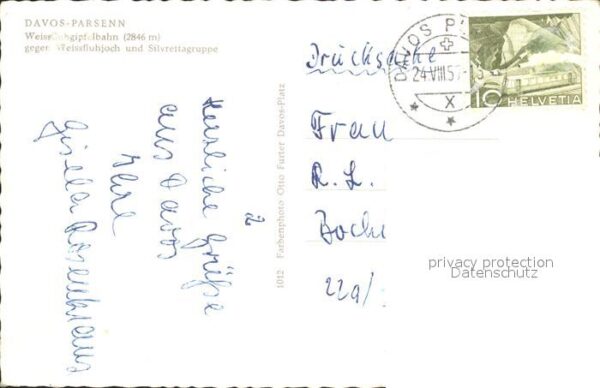 DAVOS-PARSENN
Weissfluhgipfelbahn (2846 m)
gegen Weissfluhjoch und Silvrettagruppe
Herzliche Grüße
aus Davos
Ihre
Gisela Rosenkranz
1012 Farbenphoto Otto Furter Davos-Platz
Drucksache
DAVOS P
24.VIII.57
X
10 HELVETIA
Frau
R. L.
Boch
22a/
privacy protection
Datenschutz